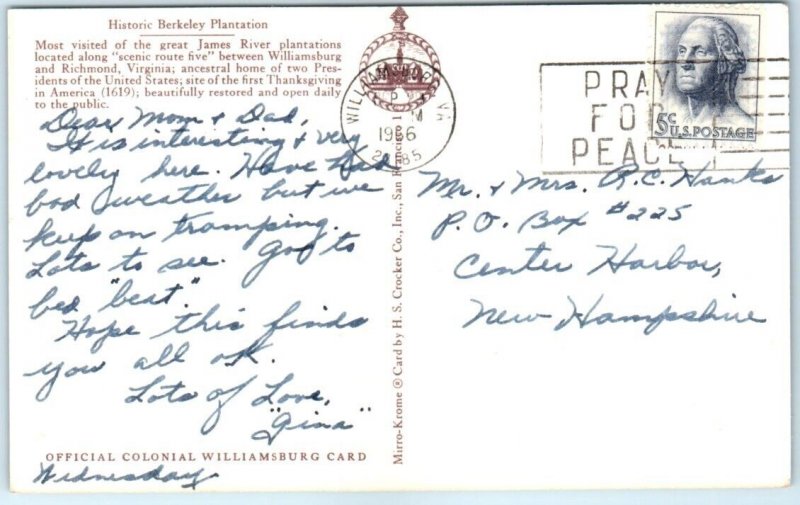 Historic Berkeley Plantation
Most visited of the great James River plantations
located along "scenic route five" between Williamsburg
and Richmond, Virginia; ancestral home of two Pres-
idents of the United States; site of the first Thanksgiving
in America (1619); beautifully restored and open daily
to the public.
Dear Mom & Dad,
It is interesting & very
lovely here. Have had
bad weather but we
keep on tramping.
Lots to see. Go to
bed "beat."
Hope this finds
you all OK.
Lots of Love,
"Gina"
OFFICIAL COLONIAL WILLIAMSBURG CARD
Wednesday
Mirro-Krome ® Card by H. S. Crocker Co., Inc., San Francisco 1
VA
PM
1966
PRAY
FOR
PEACE
5c
U.S. POSTAGE
Mr. & Mrs. R.C. Hanks
P.O. Box #225
Center Harbor,
New Hampshire